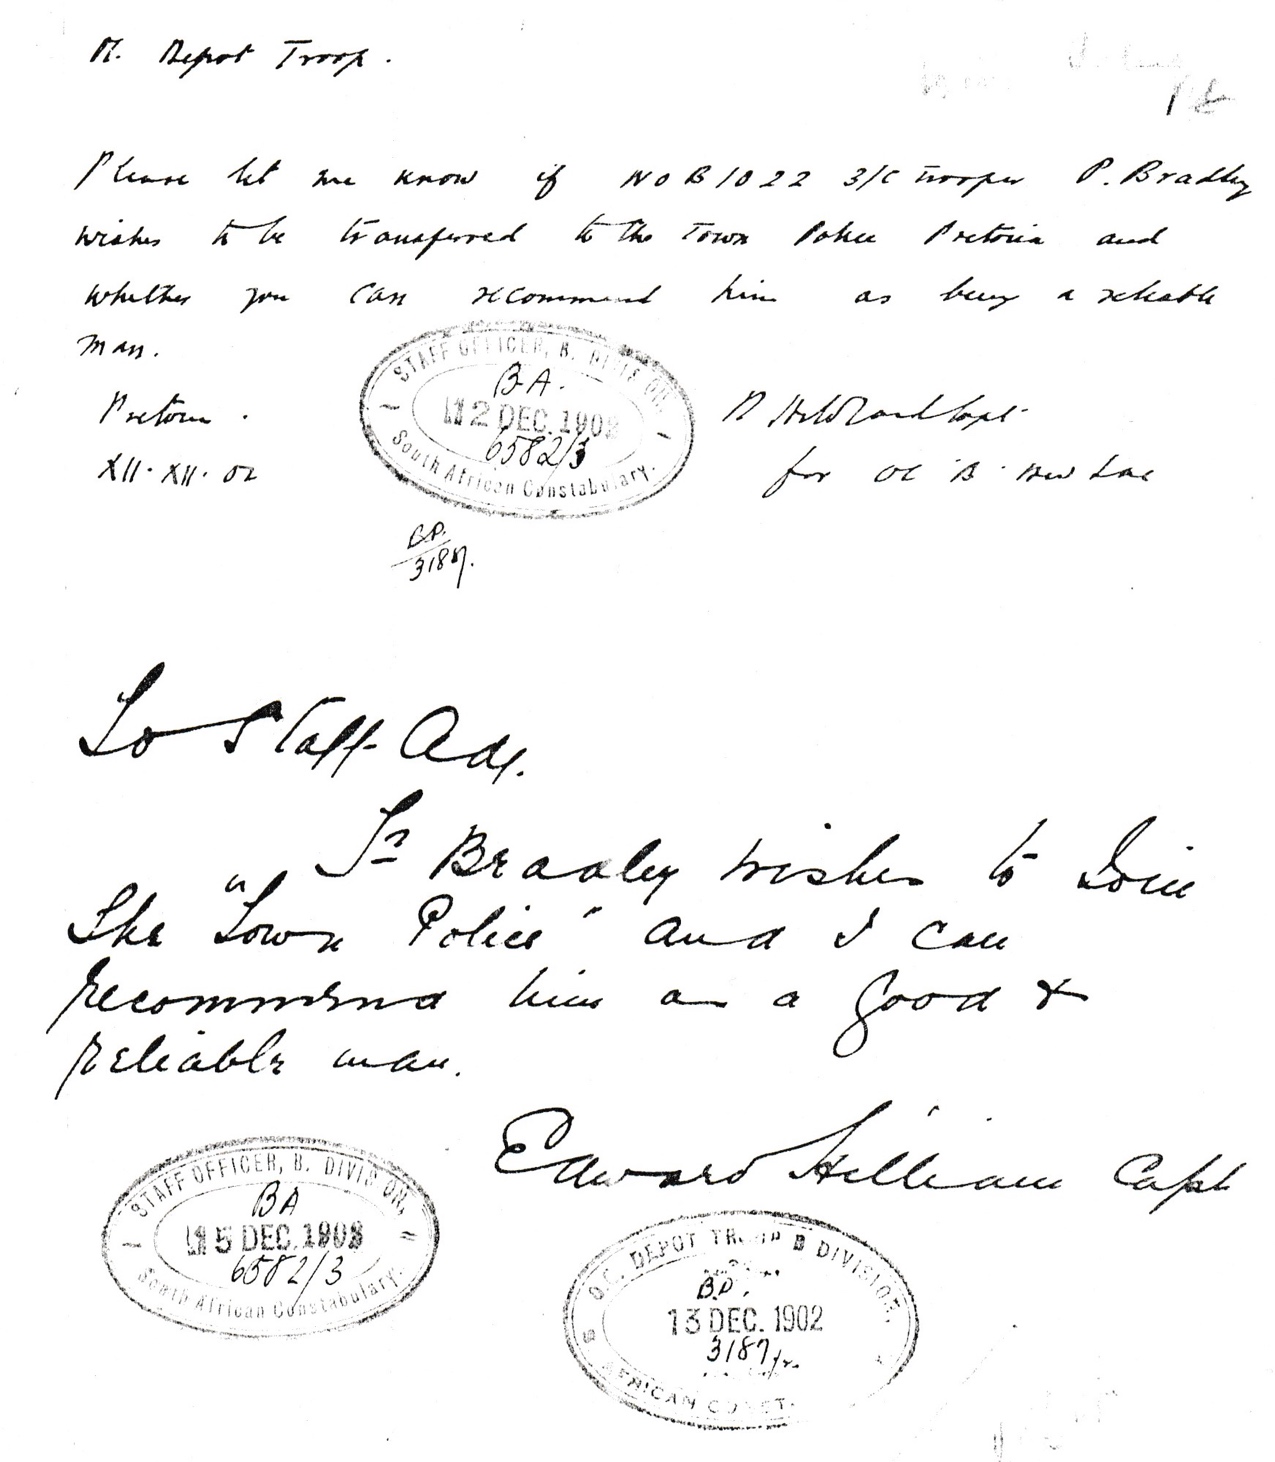 Depot Troop.
Please let me know if No B1022 3/C Trooper P. Bradley
wishes to be transferred to the Town Police Pretoria and
whether you can recommend him as being a reliable
man.
Pretoria.
XII. XII. 02
Capt
for OC B
STAFF OFFICER, B. DIVISION,
BA.
12 DEC. 1902
6582/3
South African Constabulary.
B.P.
3187.
To Staff Adj.
Tr Bradley wishes to Join
The "Town Police" and I can
recommend him as a good &
reliable man.
Edward Capt
STAFF OFFICER, B. DIVISION,
BA
15 DEC. 1902
6582/3
South African Constabulary.
O.C. DEPOT TROOP B DIVISION,
B.P.
13 DEC. 1902
3187
S AFRICAN CONST.